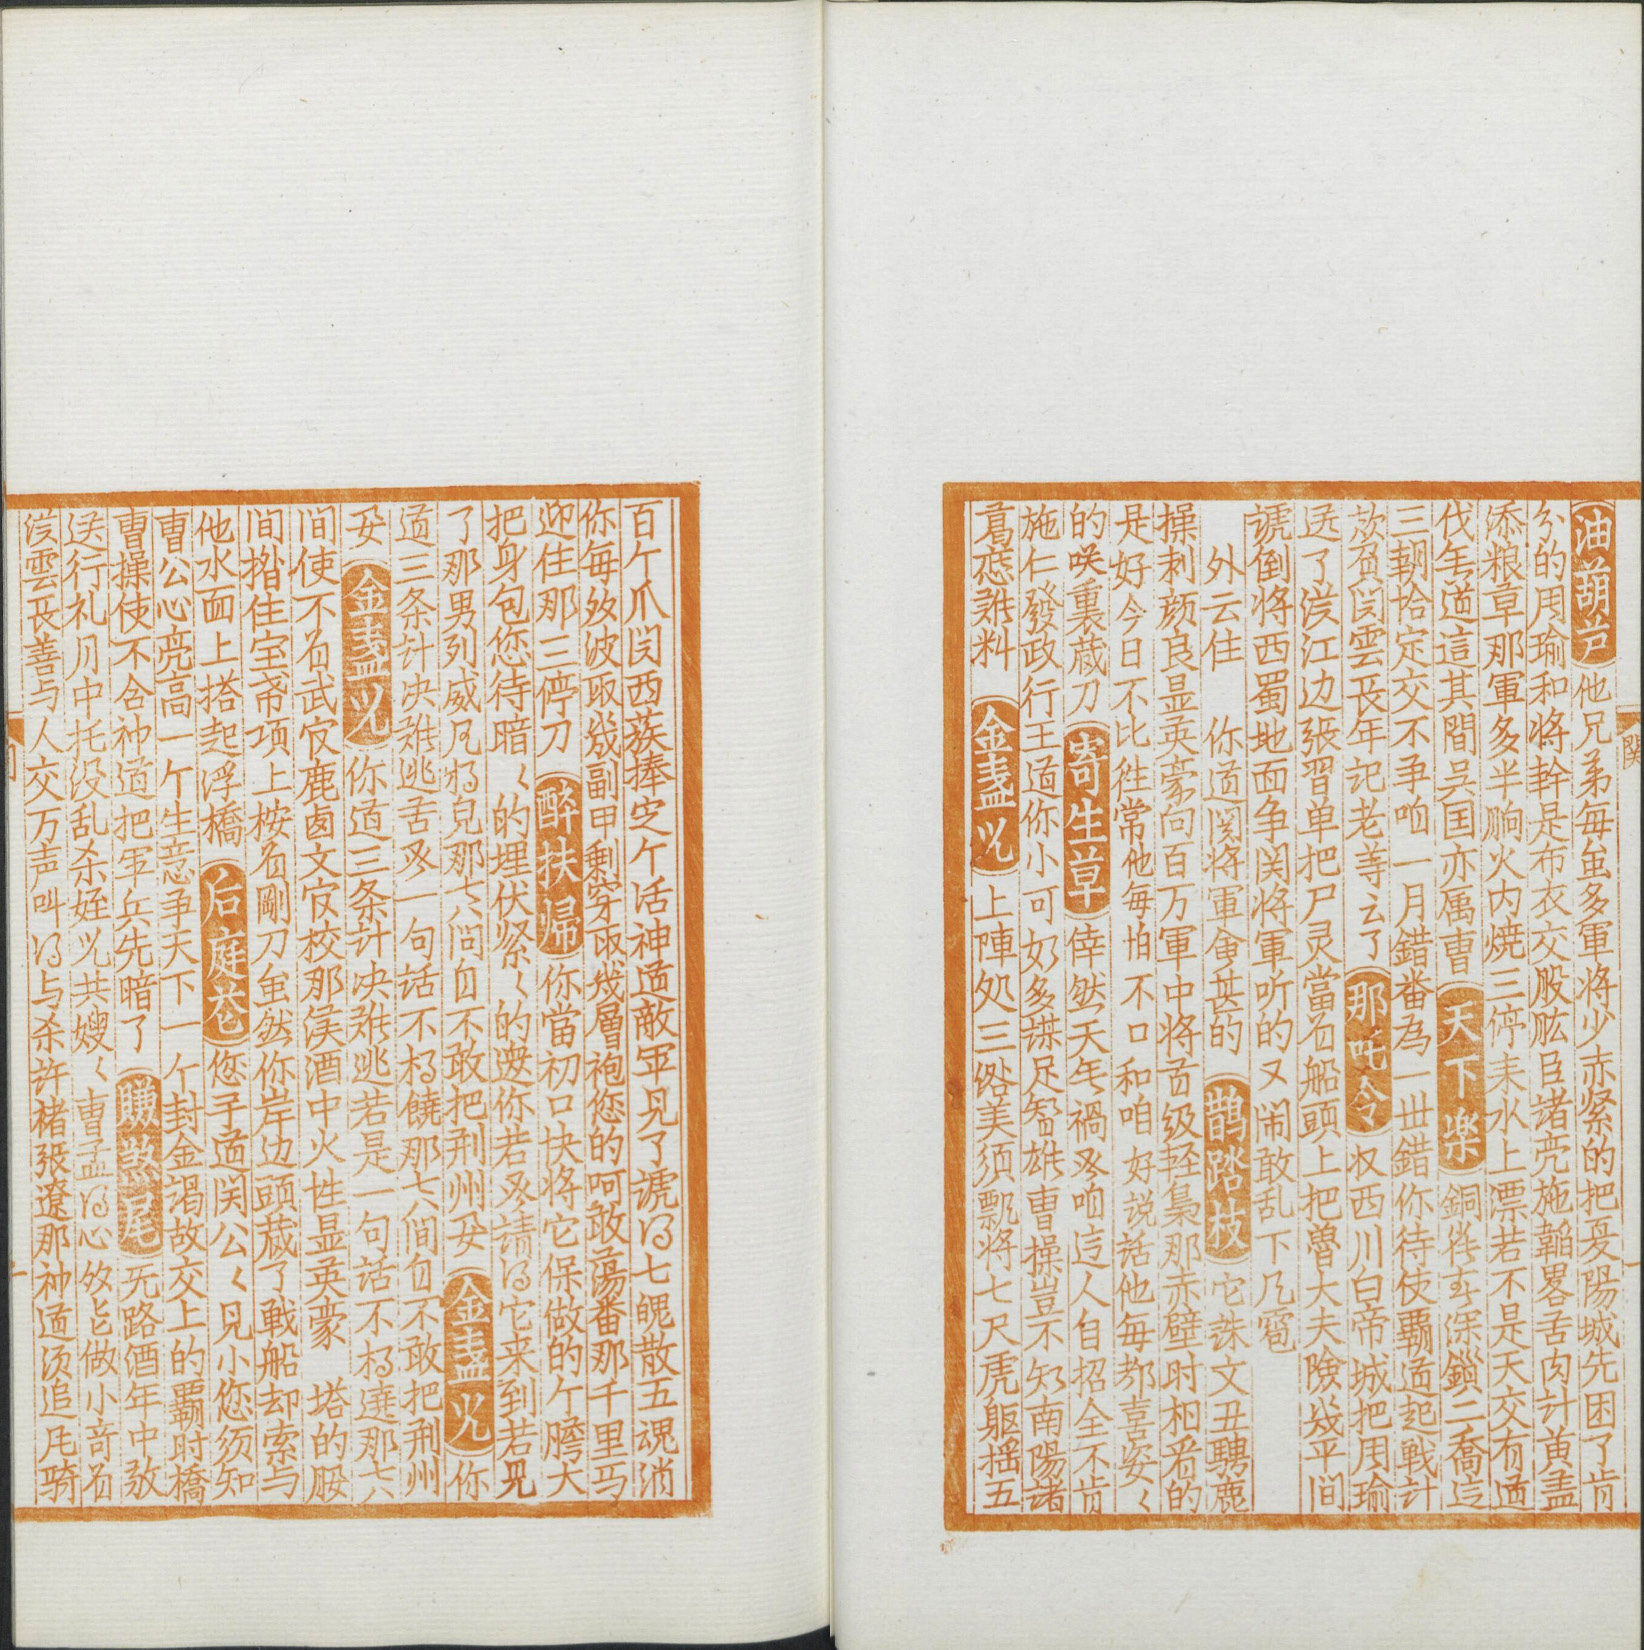 油葫芦 他兄弟每虽多軍将少赤紧的把夏陽城先困了肯
分的周瑜和将幹是布衣交股肱臣诸亮施韜畧苦肉計黄盖
添粮草那軍多半晌火内焼三停来水上漂若不是天交有道
伐无道這其間吴国亦属曹 天下樂 銅雀春深鎖二喬這
三朝拾定交不争咱一月錯番為一世錯你待使覇道起戰計
欺負関雲長年记老等云了 那吒令 收西川白帝城把周瑜
送了漢江边張習单把尸灵當石船頭上把魯大夫險幾乎間
諕倒将西蜀地面争関将軍听的又闹敢乱下凡雹
外云住 你道関将軍會甚的 鹊踏枝 它誅文丑騁麁
操刺颜良显英豪向百万軍中将首级轻梟那赤壁时相看的
是好今日不比徃常他每怕不口和咱好说话他每都喜姿〱
的咲裏蔵刀 寄生草 倖然天无禍又咱這人自招全不肯
施仁發政行王道你小可奶多謀足智雄曹操豈不知南陽諸
葛應难料 金盏儿 上陣処三綹美须飄将七尺虎躯揺五
百个爪関西蔟捧定个活神道敵军见了諕得七魄散五魂消
你每多波取幾副甲剩穿取幾層袍您的呵敢蕩番那千里马
迎住那三停刀 醉扶帰 你當初口快将它保做的个膽大
把身包您待暗〱的埋伏緊〱的邀你若又請得它来到若見
了那男列威风你兒那六問自不敢把荆州要 金盏儿 你
道三条计决难逃苦又一句话不相饒那六間自不敢把荆州
要 金盏儿 你道三条计决难逃若是一句话不相達那六
間使不石武官麁卤文官校那漢酒中火性显英豪 塔的腶
間揝住宝帶项上桉石剛刀虽然你岸边頭蔵了戰船却索与
他水面上搭起浮橋 后庭花 您子道関公〱见小您须知
曹公心亮高一个生意争天下一个封金謁故交上的覇时橋
曹操使不合神道把军兵先暗了 賺煞尾 无路酒年中散
送行礼月中托没乱杀姪儿共嫂〱曹孟得心多能做小竒石
漢雲長善与人交万声叫得与杀許褚張遼那神道须追風骑
関